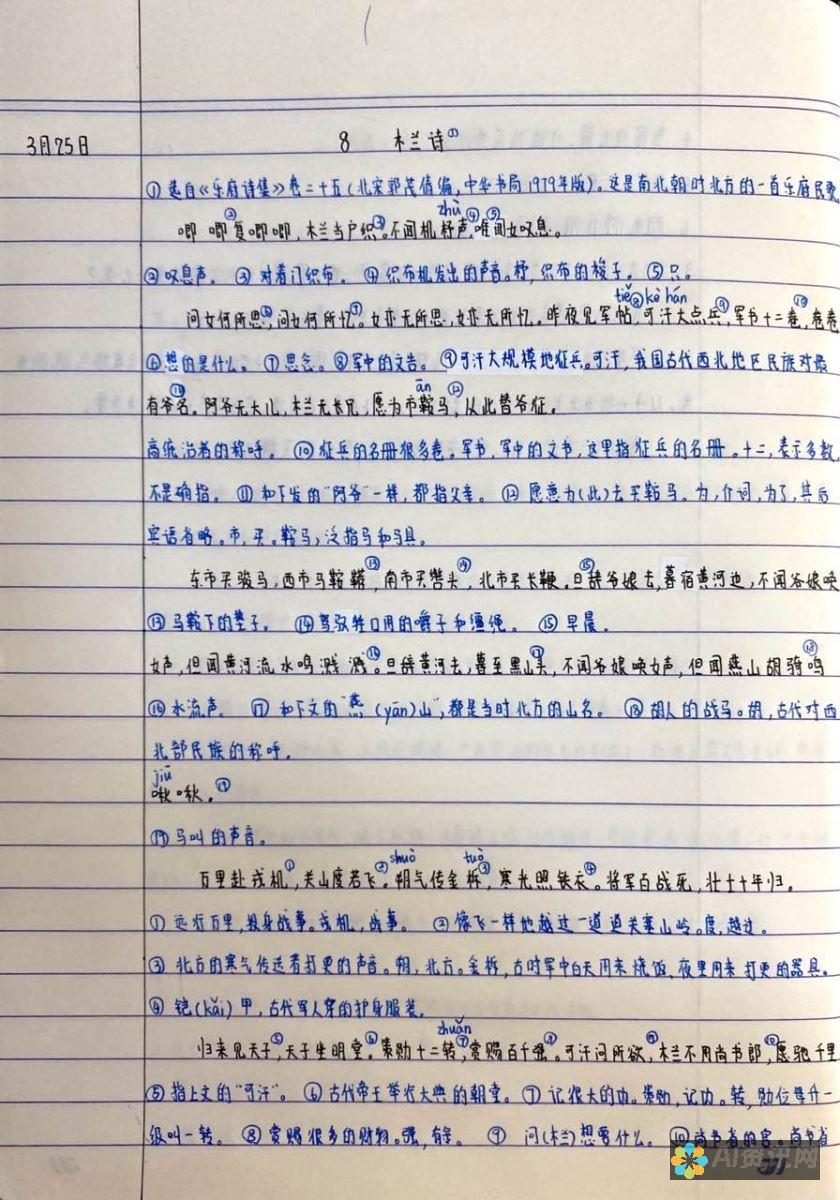 3月25日 8 木兰诗①
①选自《乐府诗集》卷二十五(北宋郭茂倩编,中华书局1979年版)。这是南北朝时北方的一首乐府民歌
唧唧②复唧唧,木兰当户织③。不闻机杼zhù声④,唯⑤闻女叹息。
②叹息声。 ③对着门织布。 ④织布机发出的声音。杼,织布的梭子。 ⑤只。
问女何所思⑥,问女何所忆⑦。女亦无所思,女亦无所忆。昨夜见军帖tiě⑧,可汗kè hán大点兵⑨,军书十二卷⑩,卷卷
⑥想的是什么。 ⑦思念。 ⑧军中的文告。 ⑨可汗大规模地征兵。可汗,我国古代西北地区民族对最
有爷⑪名。阿爷无大儿,木兰无长兄,愿为市鞍ān马⑫,从此替爷征。
高统治者的称呼。 ⑩征兵的名册很多卷。军书,军中的文书,这里指征兵的名册。十二,表示多数,
不是确指。 ⑪和下发的“阿爷”一样,都指父亲。 ⑫愿意为(此)去买鞍马。为,介词,为了,其后
宾语省略。市,买。鞍马,泛指马和马具。
东市买骏马,西市马鞍鞯⑬,南市买辔头⑭,北市买长鞭。旦⑮辞爷娘去,暮宿黄河边,不闻爷娘唤
⑬马鞍下的垫子。 ⑭驾驭牲口用的嚼子和缰绳。 ⑮早晨。
女声,但闻黄河流水鸣溅溅⑯。旦辞黄河去,暮至黑山⑰头,不闻爷娘唤女声,但闻燕山胡骑⑱鸣
⑯水流声。 ⑰和下文的“燕(yān)山”,都是当时北方的山名。 ⑱胡人的战马。胡,古代对西
北部民族的称呼。
jiū
啾啾。⑲
⑲马叫的声音。
万里赴戎机①,关山度若飞②。朔shuò气传金柝tuò③,寒光照铁衣④。将军百战死,壮士十年归。
①远行万里,投身战事。戎机,战事。 ②像飞一样地越过一道道关塞山岭。度,越过。
③北方的寒气传送着打更的声音。朔,北方。金柝,古时军中白天用来烧饭、夜里用来打更的器具。
④铠(kǎi)甲,古代军人穿的护身服装。
归来见天子⑤,天子坐明堂⑥。策勋十二转zhuǎn⑦,赏赐百千强⑧。可汗问所欲⑨,木兰不用尚书郎⑩,愿驰千里
⑤指上文的“可汗”。 ⑥古代帝王举行大典的朝堂。 ⑦记很大的功。策勋,记功。转,勋位每升一
级叫一转。 ⑧赏赐很多的财物。强,有余。 ⑨问(木兰)想要什么。 ⑩尚书省的官。尚书省
AI资讯网